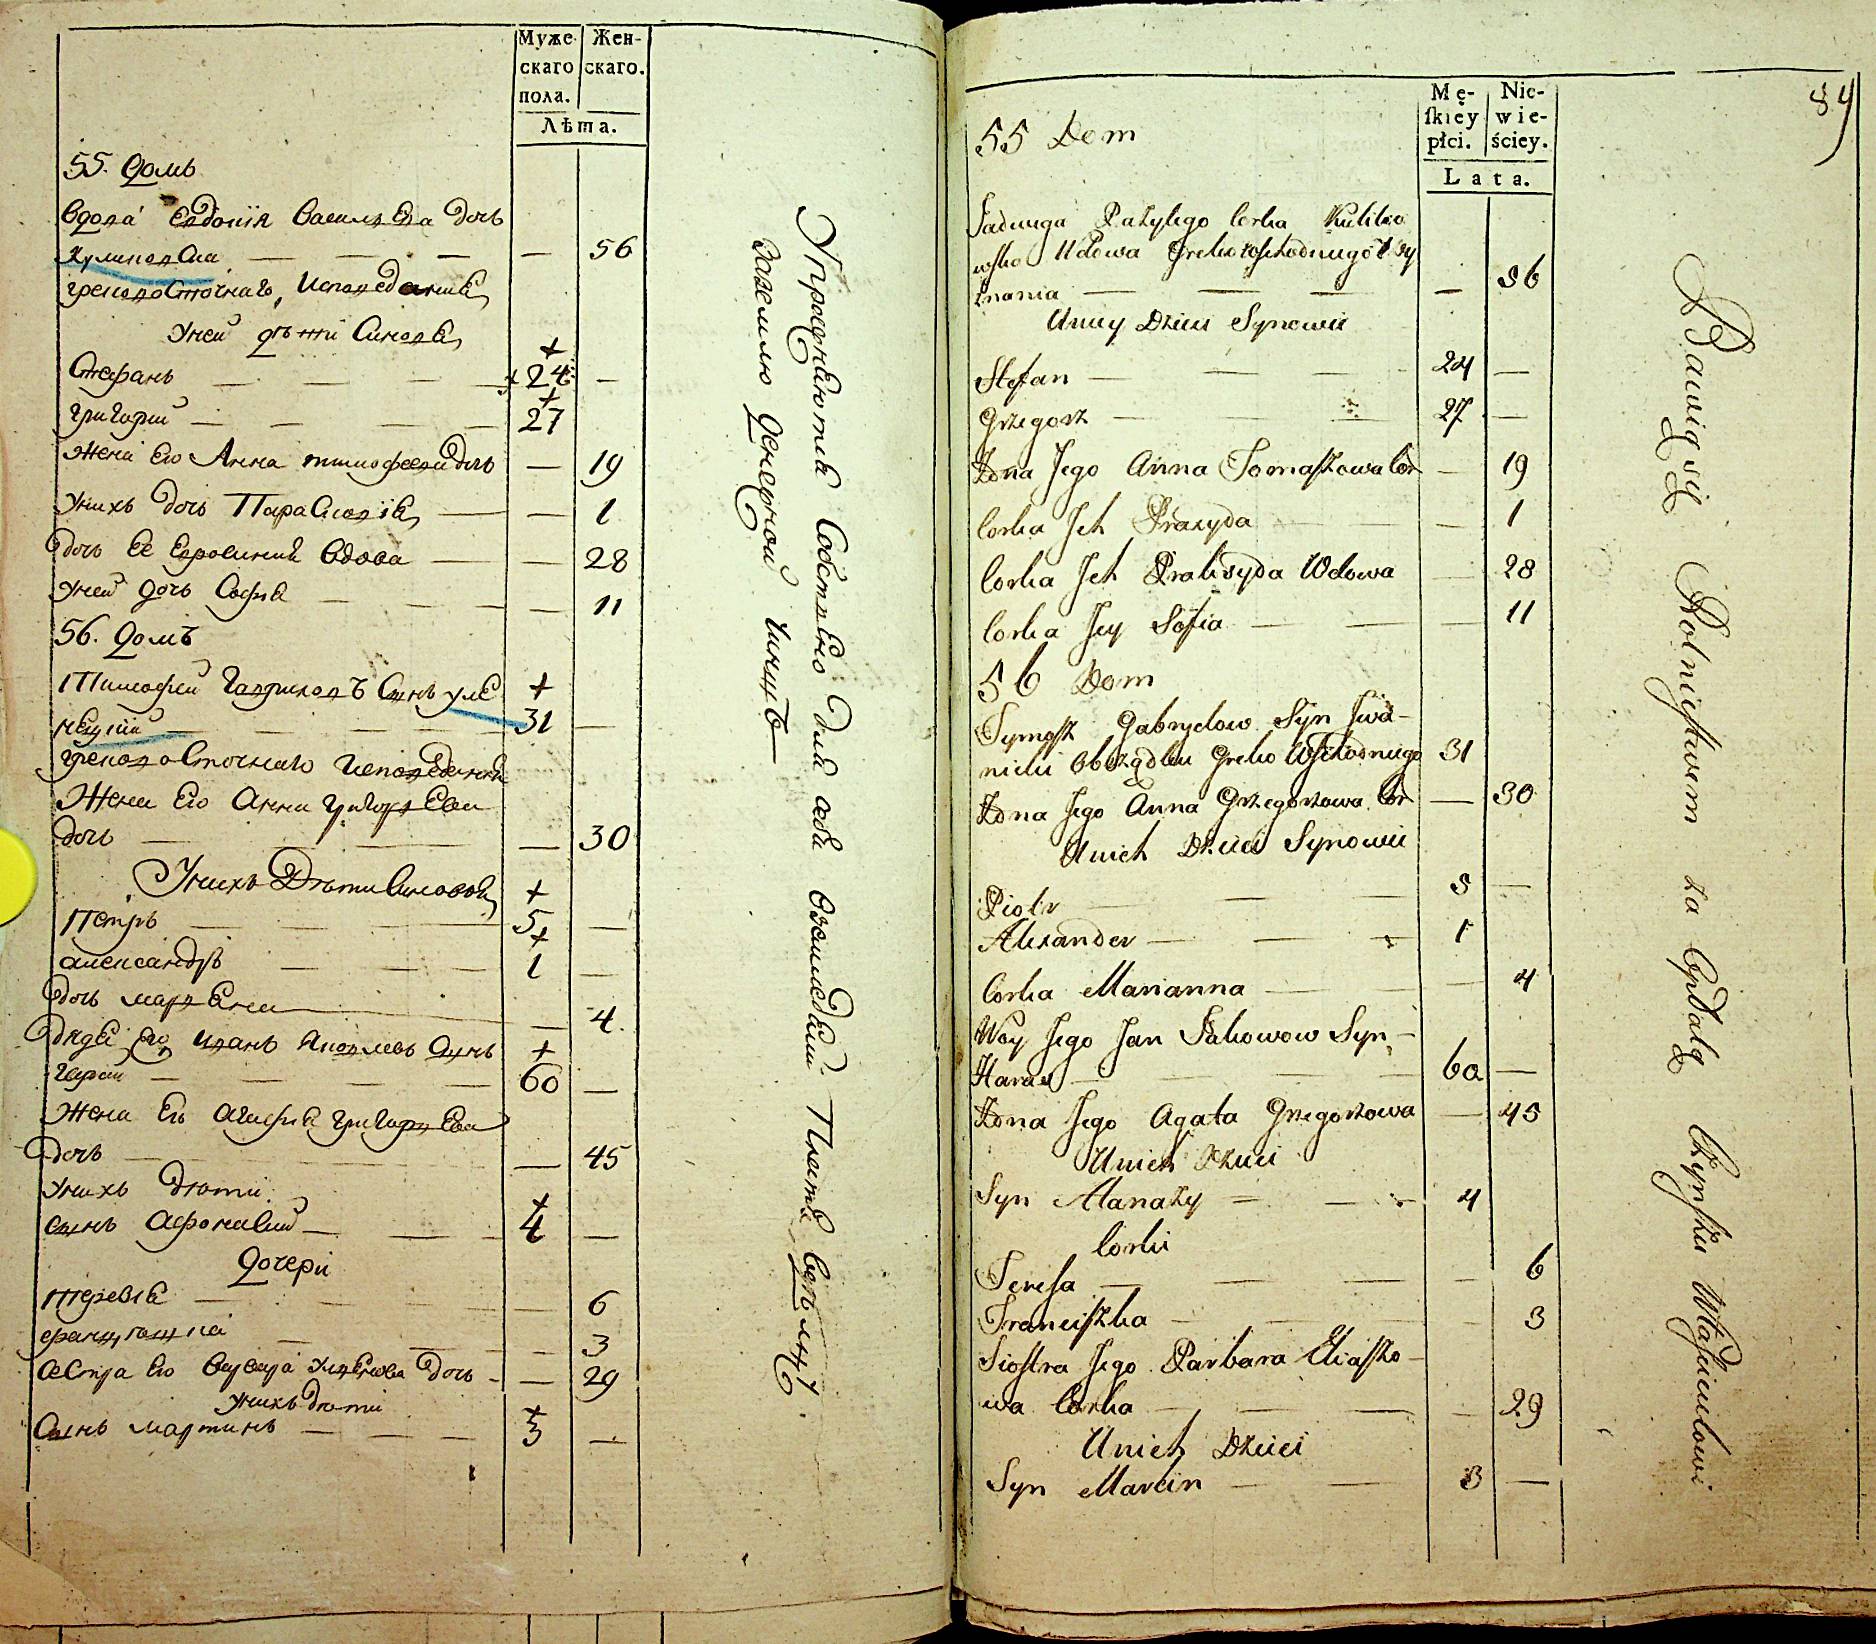 Муже-
скаго
пола.
Жен-
скаго.
Лѣта.
55. домъ
Вдова Евдокія Васильева дочь
Куликовска — 56
грековосточнаго исповеданія
Унеи дѣти Синове
Стефанъ — 24 —
Григорий — 27 —
Жена Его Анна тимофеева дочь — 19
Унихъ дочь Парасковія — 1
Дочь Ее Евросиния Вдова — 28
Унеи дочь София — 11
56. домъ
Тимофей Гаврилов Сынъ
31 —
грековосточнаго исповедания
Жена Его Анна Григорьева
дочь — 30
Унихъ Дѣти Синове
Петръ — 5 —
александръ — 1 —
дочь мариена — 4
Дядя Его иванъ Яковлевъ Сынъ
60 —
Жена Его Агафия григорьева
дочь — 45
Унихъ дѣти
сынъ Афонасий — 4 —
дочери
терезія — 6
францишка — 3
Сестра Его Варвара дочь — 29
Унихъ дѣти
Сынъ мартинъ — 3 —
Упражняются Собственно для себя Земледѣлием
за землю денежной чиншъ
84
Mę-
skiey
płci.
Nie-
wie-
ściey.
Lata.
55 Dom
Jadwiga Bazylego Corka Kuliko
wska Wdowa Greko wschodniego Wy
znania — 56
U niey Dzieci Synowie
Stefan — 24 —
Grzegorz — 27 —
Żona Jego Anna Tomaszowa Cor — 19
Corka Ich Praxyda — 1
Corka Ich Praksyda Wdowa — 28
Corka Jey Sofia — 11
56 Dom
Tymosz Gabryelow Syn Iwa-
nicki Obrządku Greko Wschodniego 31
Żona Jego Anna Grzegorzowa Cor — 30
U nich Dzieci Synowie
Piotr — 5 —
Alexander — 1
Corka Marianna — 4
Wuy Jego Jan Jakowow Syn —
60 —
Żona Jego Agata Grzegorzowa — 45
U nich Dzieci
Syn Atanazy — 4
Corki
Teresa — 6
Franciszka — 3
Siostra Jego Barbara Eliaszo-
wa Corka — 29
U nich Dzieci
Syn Marcin — 3 —
Bawią się Rolnictwem za Opłatą Czynszu Właścicielowi